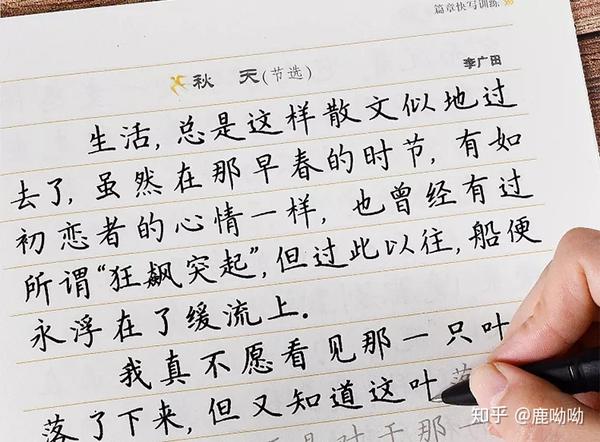 篇章快写训练
秋 天(节选)
李广田
生活,总是这样散文似地过
去了,虽然在那早春的时节,有如
初恋者的心情一样,也曾经有过
所谓“狂飙突起”,但过此以往,船便
永浮在了缓流上.
我真不愿看见那一只叶
落了下来,但又知道这叶落
是对于那
知乎 @鹿呦呦